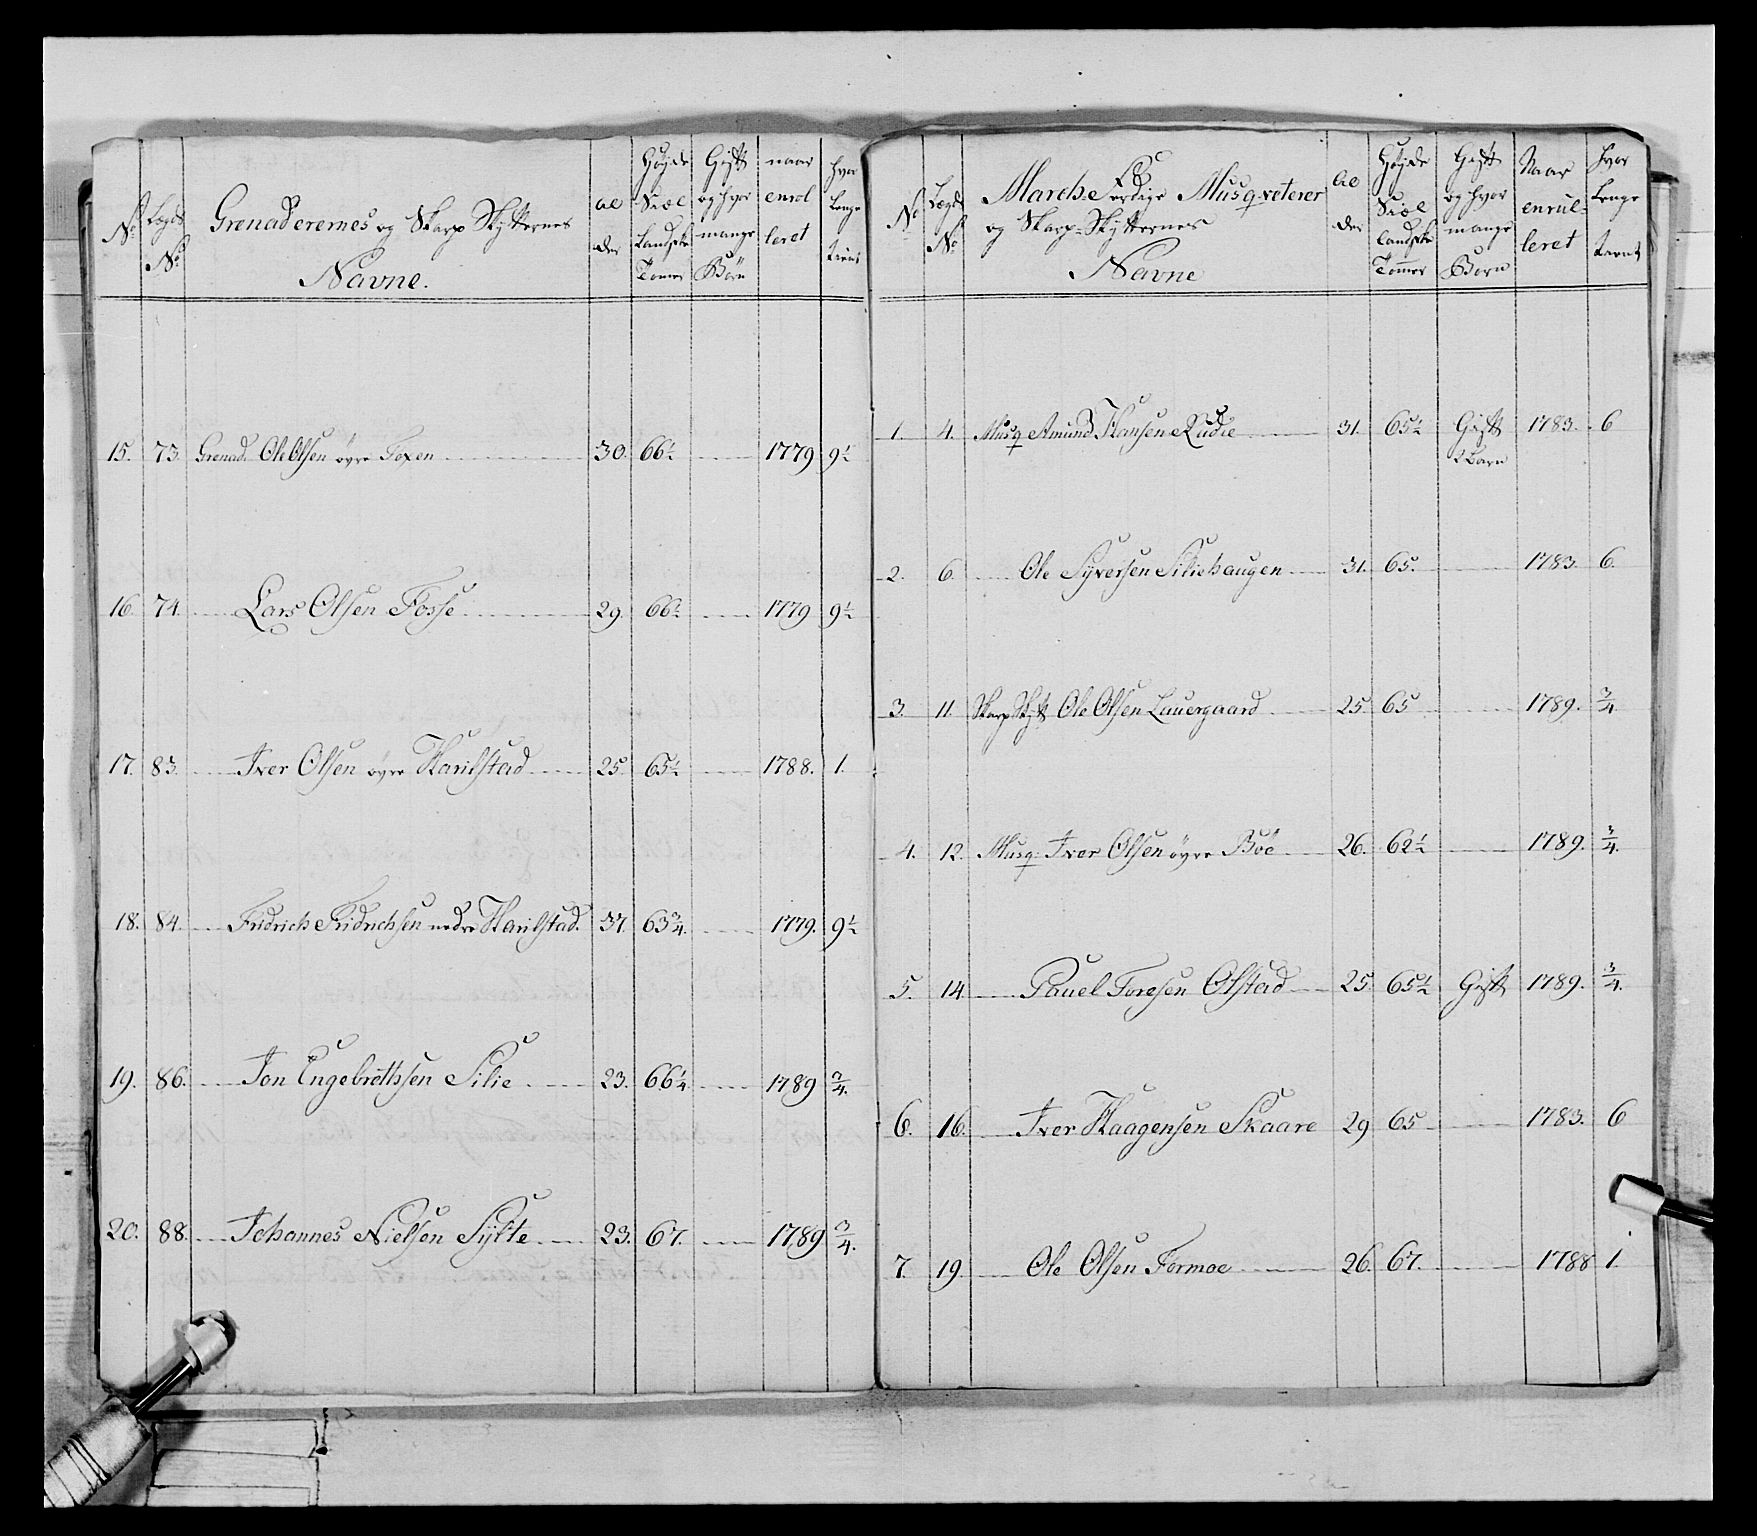 No Lægds No Grenaderernes og Skarp Skytternes Navne. Al der Højde Siæl landske Tomer Gift og hvor mange Börn naar enrol leret hvor lenge tient
15. 73. Grenad. Ole Olsen øvre Foxen 30. 66½ 1779 9½
16. 74. Lars Olsen Fosse 29. 66½ 1779 9½
17. 83. Iver Olsen øvre Harilstad 25. 65½ 1788. 1.
18. 84. Fridrich Fridrichsen nedre Harilstad. 37. 63¾. 1779. 9½
19. 86. Jon Engebrethsen Silie 23. 66¼ 1789 ¾.
20. 88. Johannes Nielsen Sylte 23. 67. 1789 ¾.
No Lægds No Marche Færdige Musqveterer og Skarp-Skytternes Navne Al der Højde Siæl landske Tommer Gift og hvor mange Børn Naar enrul- leret hvor lenge tient
1. 4. Musq Amund Hansen Rudie 31. 65½ Gift 1783. 6
2 Barn
2. 6. Ole Syversen Siliehaugen 31. 65. 1783. 6.
3. 11. Skarp Skytt Ole Olsen Lauergaard 25. 65 1789. ¾
4. 12. Musq. Iver Olsen øvre Böe 26. 62½ 1789. ¾.
5. 14 Pauel Toresen Olstad 25. 65½ Gift 1789. ¾.
6. 16. Iver Haagensen Skaare 29 65 1783. 6
7. 19 Ole Olsen Formoe 26. 67. 1788 1.